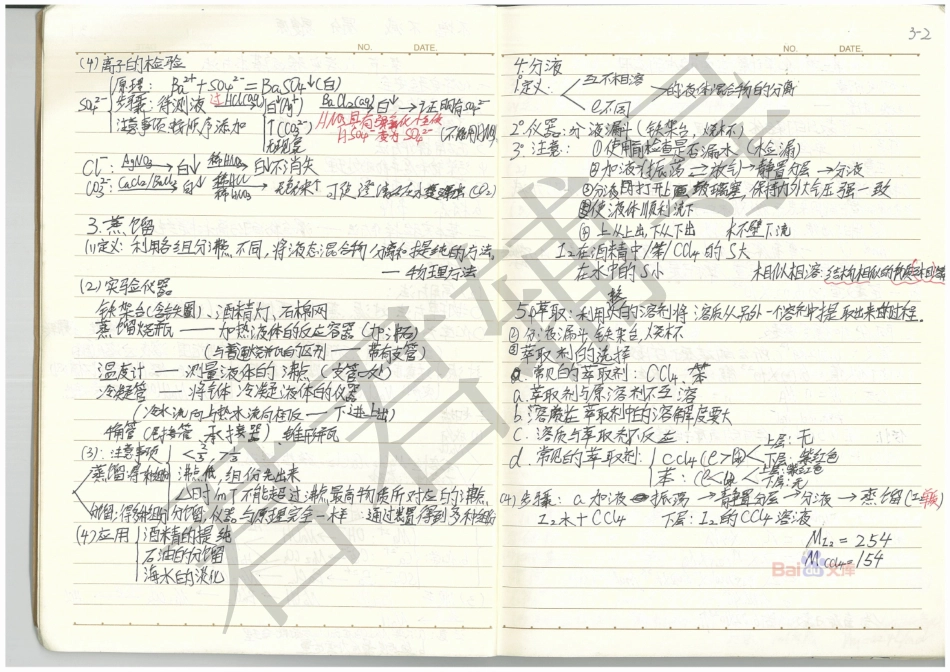 NO. DATE.
(4)离子的检验
原理： Ba²⁺+SO₄²⁻=BaSO₄↓(白)
SO₄²⁻ 步骤：待测液 过HCl(aq) 白↓(Ag⁺) BaCl₂(aq) 白↓→证明有SO₄²⁻
注意事项：按顺序添加 ↑(CO₃²⁻) HNO₃具有强氧化性使
无现象 H₂SO₃变为SO₄²⁻ (不能用HNO₃)
Cl⁻： AgNO₃ → 白↓ 稀HNO₃ 白↓不消失
CO₃²⁻： CaCl₂/BaCl₂ → 白↓ 稀HCl 稀HNO₃ →
3.蒸馏
(1)定义：利用各组分沸点不同，将液态混合物分离和提纯的方法，
——物理方法
(2)实验仪器
铁架台(含铁圈)、酒精灯、石棉网
蒸馏烧瓶——加热液体的反应容器(加沸石)
(与普通烧瓶的区别——带有支管)
温度计——测量液体的沸点(支管口处)
冷凝管——将气体冷凝液体的仪器
(冷水流向与热水流向相反——下进上出)
牛角管(尾接管、承接器)、锥形瓶
(3)：注意事项 <2/3，>1/3
蒸馏得 沸点低，组份先出来
加时m不能超过沸点最高物质所对应的沸点
分馏：得 分馏，仪器与原理完全一样 通过装置得到多种组份
(4)应用 酒精的提纯
石油的分馏
海水的淡化
3-2
NO. DATE.
4.分液
1°定义： 互不相溶 的液体混合物的分离
ρ不同
2°仪器：分液漏斗(铁架台，烧杯)
3°注意： ①使用前检查是否漏水 (检漏)
②加液体振荡⇌放气→静置分层→分液
③分液时打开上面玻璃塞，保持内外大气压强一致
使液体顺利流下
上从上出，下从下出
I₂在酒精中/苯/CCl₄的S大
在水中的S小 相似相溶：结构相似的
5.萃取：利用 的溶剂将溶质从另外一个溶剂中提取出来的过程。
①分液漏斗、铁架台，烧杯
②萃取剂的选择
常见的萃取剂：CCl₄、苯
a.萃取剂与原溶剂不互溶
b.溶质在萃取剂中的溶解度要大
c.溶质与萃取剂不反应
d.常见的萃取剂： CCl₄(ρ>水) 上层：无 下层：紫红色
苯：(ρ<水) 上层：紫红色 下层：无
(4)步骤：a加液→振荡→静置分层→分液→蒸馏
I₂水+CCl₄ 下层：I₂的CCl₄溶液
M I₂=254
M CCl₄=154
Bai 文库